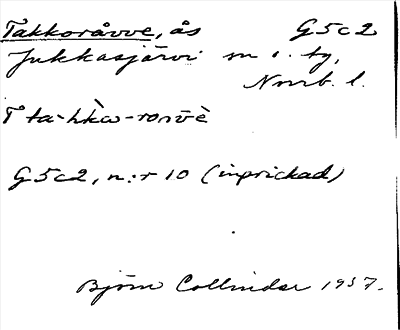 Takkoråvve, ås G5c2
Jukkasjärvi sn o. tg,
Norrb. l.
T ta-kkω-rovvè
G5c2, n:r 10 (inprickad)
Björn Collinder 1937.